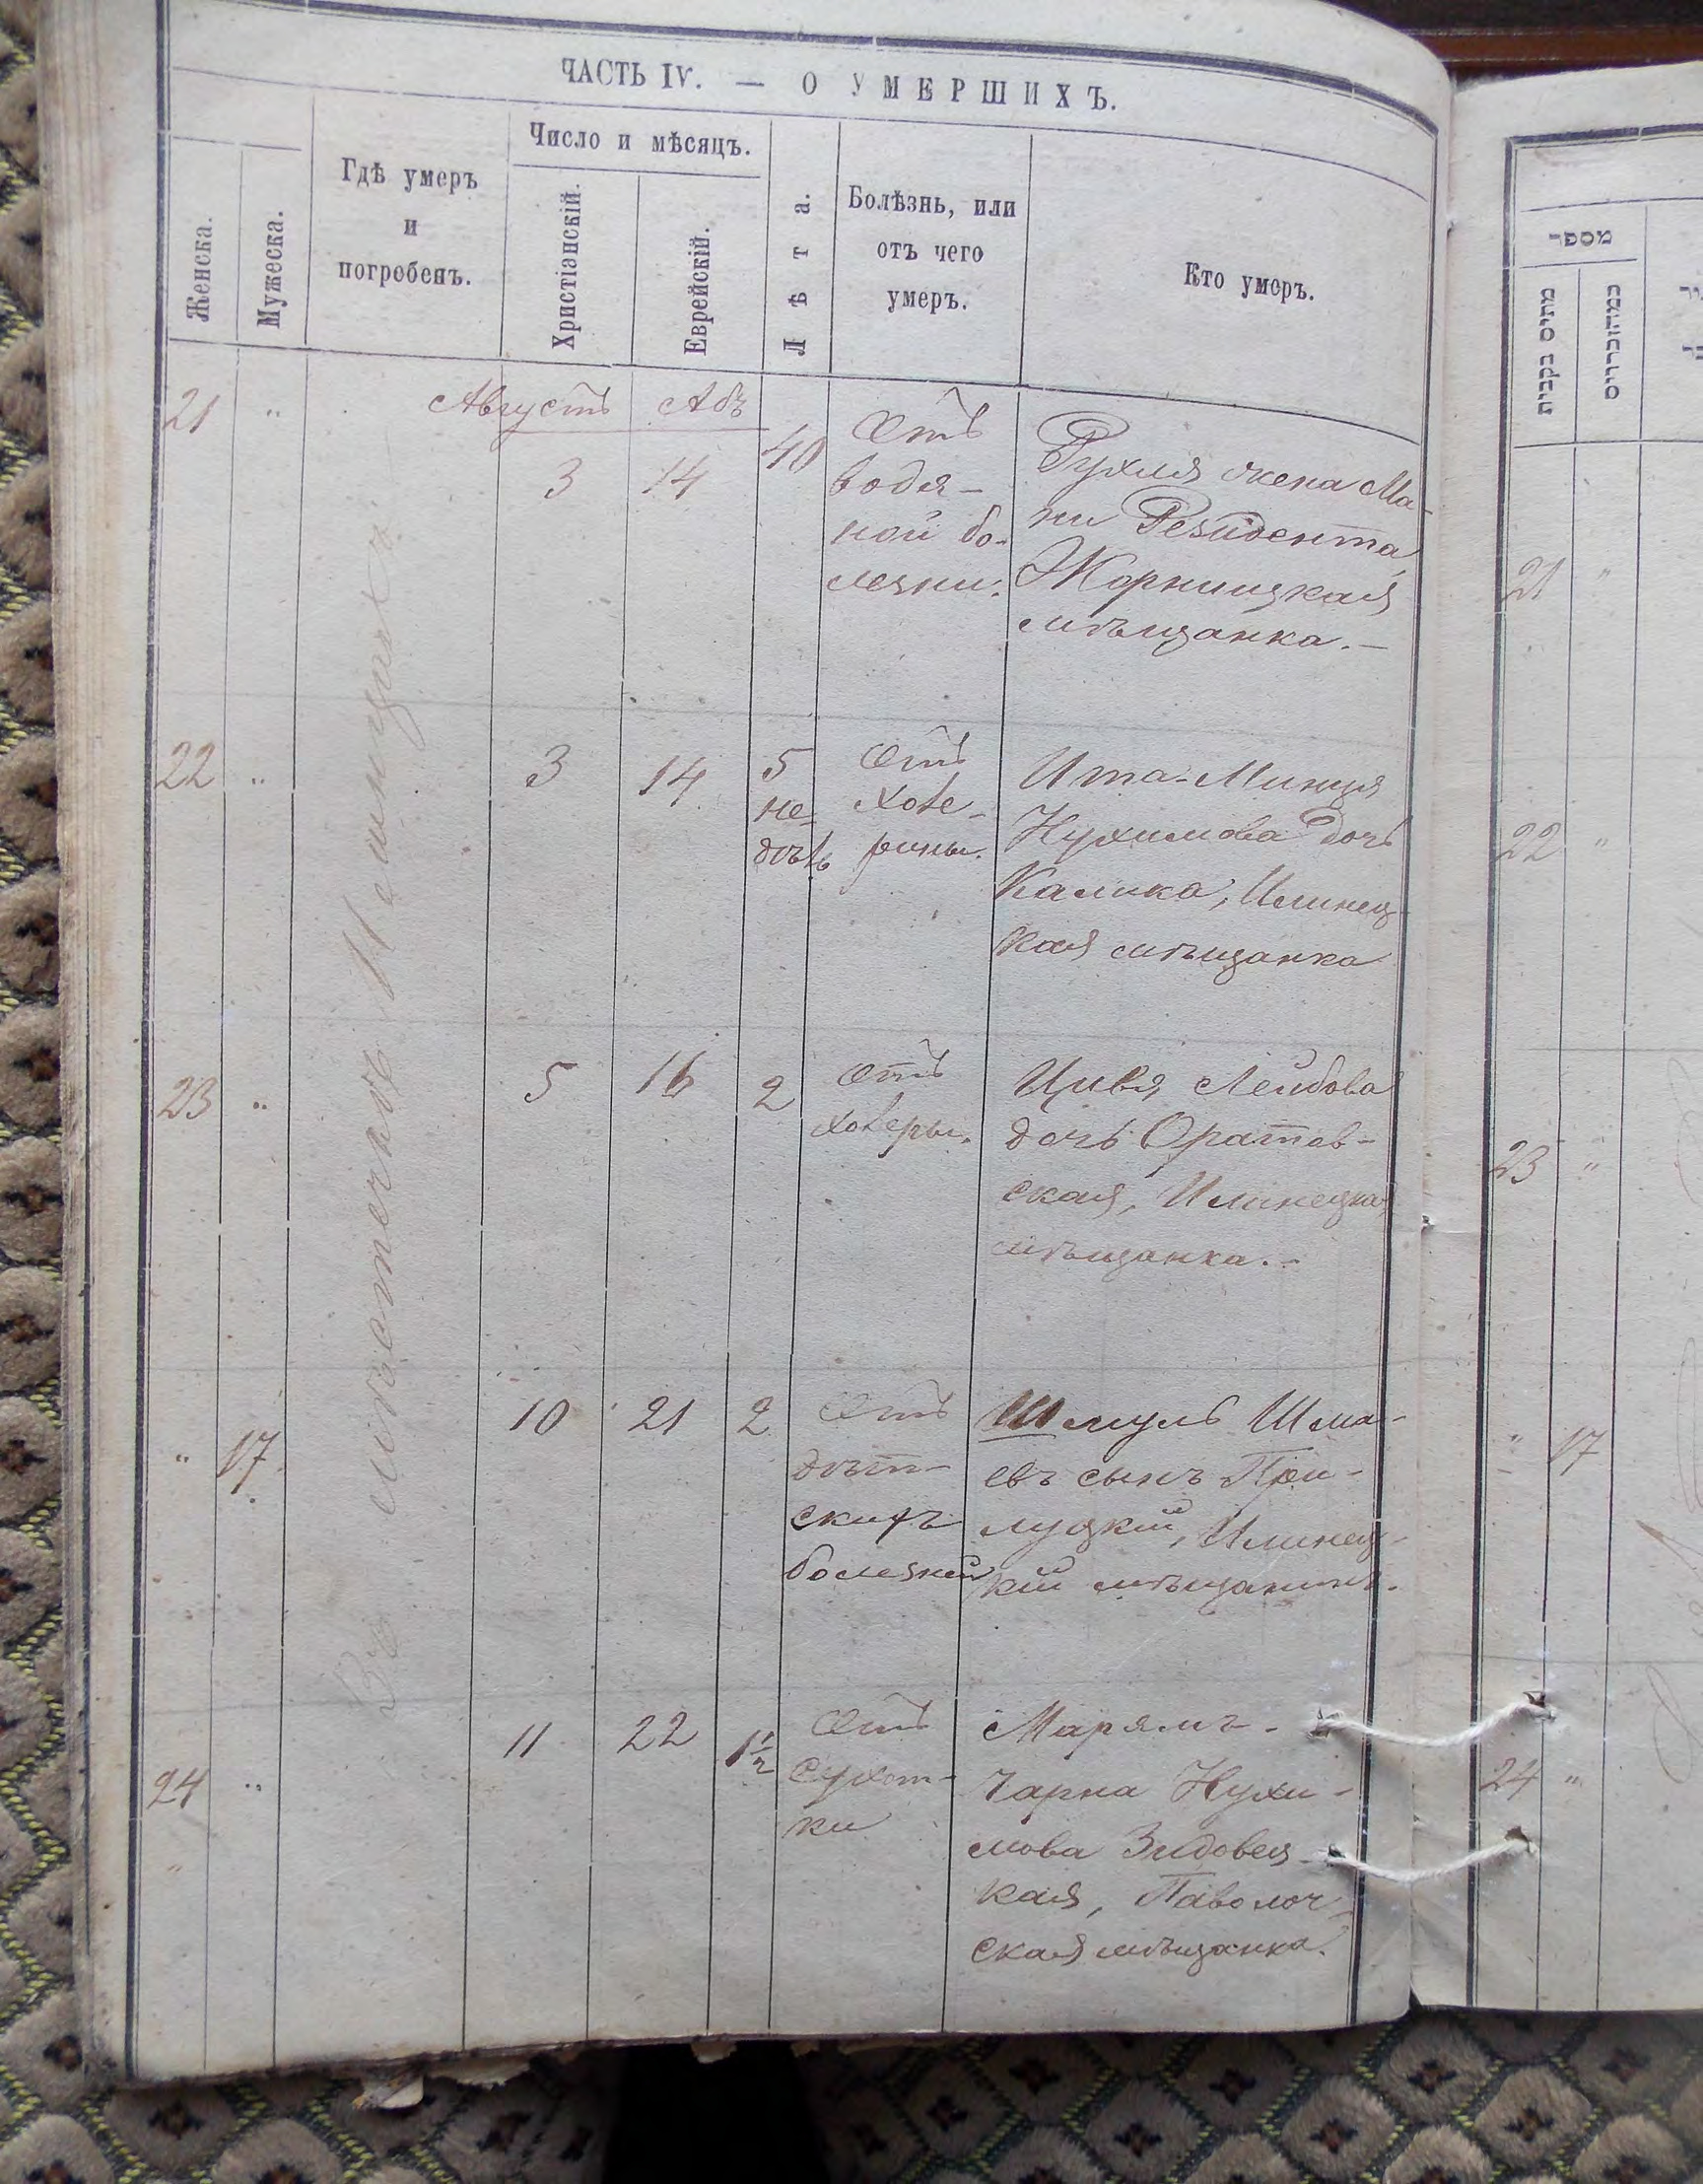 ЧАСТЬ IV. — О УМЕРШИХЪ.
Женска.
Мужеска.
Гдѣ умеръ
и
погребенъ.
Число и мѣсяцъ.
Христіанскій.
Еврейскій.
Лѣта.
Болѣзнь, или
отъ чего
умеръ.
Кто умеръ.
Въ мѣстечкѣ Илинцахъ
Августъ Абъ
21 " 3 14 40
Отъ
водя-
ной бо-
лезни.
Рухля жена Ма-
ни Резидента,
Жорнищкая
мѣщанка.—
22 " 3 14
5
не-
дѣль
Отъ
холе-
рины.
Ита-Минця
Нухимова дочь
Калика, Илинец-
кая мѣщанка
23 " 5 16 2
Отъ
холеры.
Цивя Лейбова
дочь Оратов-
ская, Илинецкая
мѣщанка.—
" 17 10 21 2
Отъ
дѣт-
скихъ
болезней
Шмуль Шма-
евъ сынъ При-
луцкій, Илинец-
кій мѣщанинъ.
24 " 11 22 1½
Отъ
сухот-
ки
Марямъ-
Чарна Нухи-
мова Зидовец-
кая, Паволоч-
ская мѣщанка.
מספר
מתים נקבות
מתים זכרים
21 "
22 "
23 "
" 17
24 "